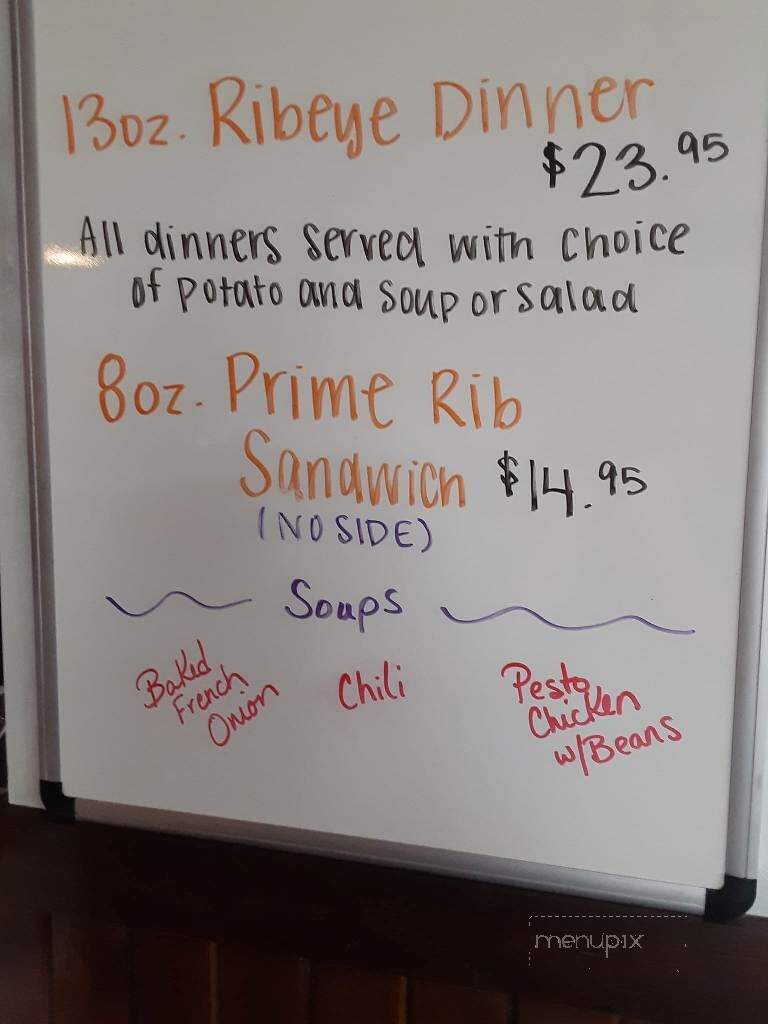 13oz. Ribeye Dinner
$23.95
All dinners served with choice
of potato and soup or salad
8oz. Prime Rib
Sandwich $14.95
(NO SIDE)
Soups
Baked
French
Onion
Chili
Pesto
Chicken
w/Beans
menupix